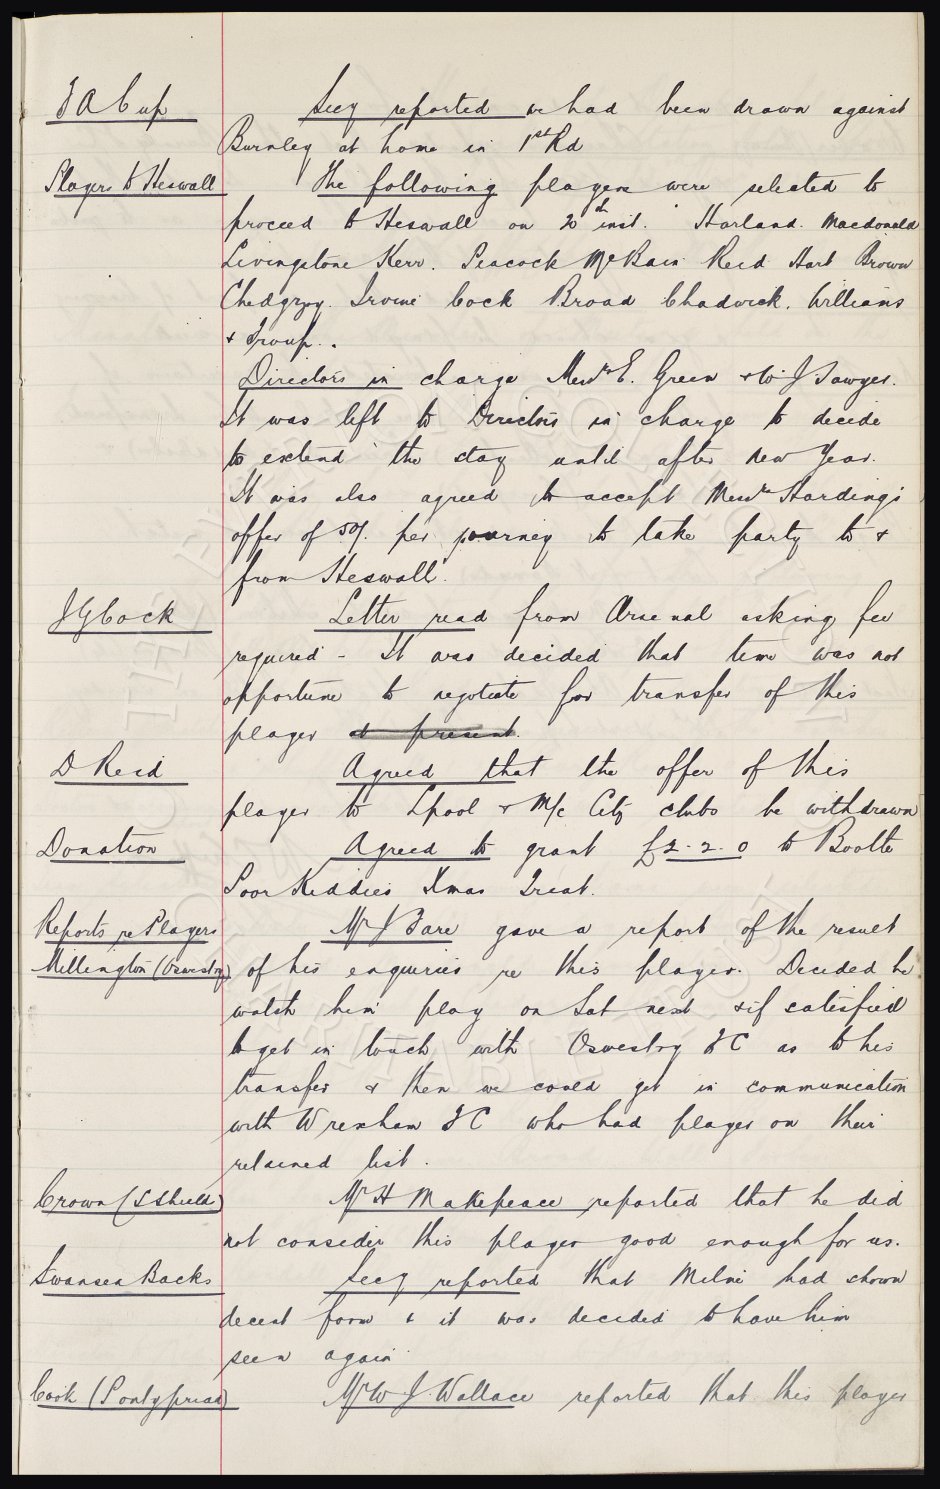 F A Cup
Secy reported we had been drawn against
Burnley at home in 1st Rd
Players to Heswall
The following players were selected to
proceed to Heswall on 20th inst. Harland. Macdonald
Livingstone Kerr. Peacock McBain Reid Hart Brown
Chedgzoy. Irvine Cock Broad Chadwick. Williams
& Troup..
Directors in charge Messrs E. Green & W J Sawyer.
It was left to Directors in charge to decide
to extend the stay until after New Year.
It was also agreed to accept Messrs Hardings
offer of 50/- per journey to take party to &
from Heswall.
J G Cock
Letter read from Arsenal asking fee
required - It was decided that time was not
opportune to negotiate for transfer of this
player at present.
D Reid
Agreed that the offer of this
player to Lpool & M/c City clubs be withdrawn
Donation
Agreed to grant £2-2-0 to Bootle
Poor Kiddies Xmas Treat.
Reports re Players
Mr J Fare gave a report of the result
Millington (Oswestry)
of his enquiries re this player. Decided he
watch him play on Sat next & if satisfied
to get in touch with Oswestry F C as to his
transfer & then we could get in communication
with Wrexham F C who had player on their
retained list.
Crown (S Shields)
Mr H Makepeace reported that he did
not consider this player good enough for us.
Swansea Backs
Secy reported that Milne had shown
decent form & it was decided to have him
seen again
Cook (Pontypriad)
Mr W J Wallace reported that this player